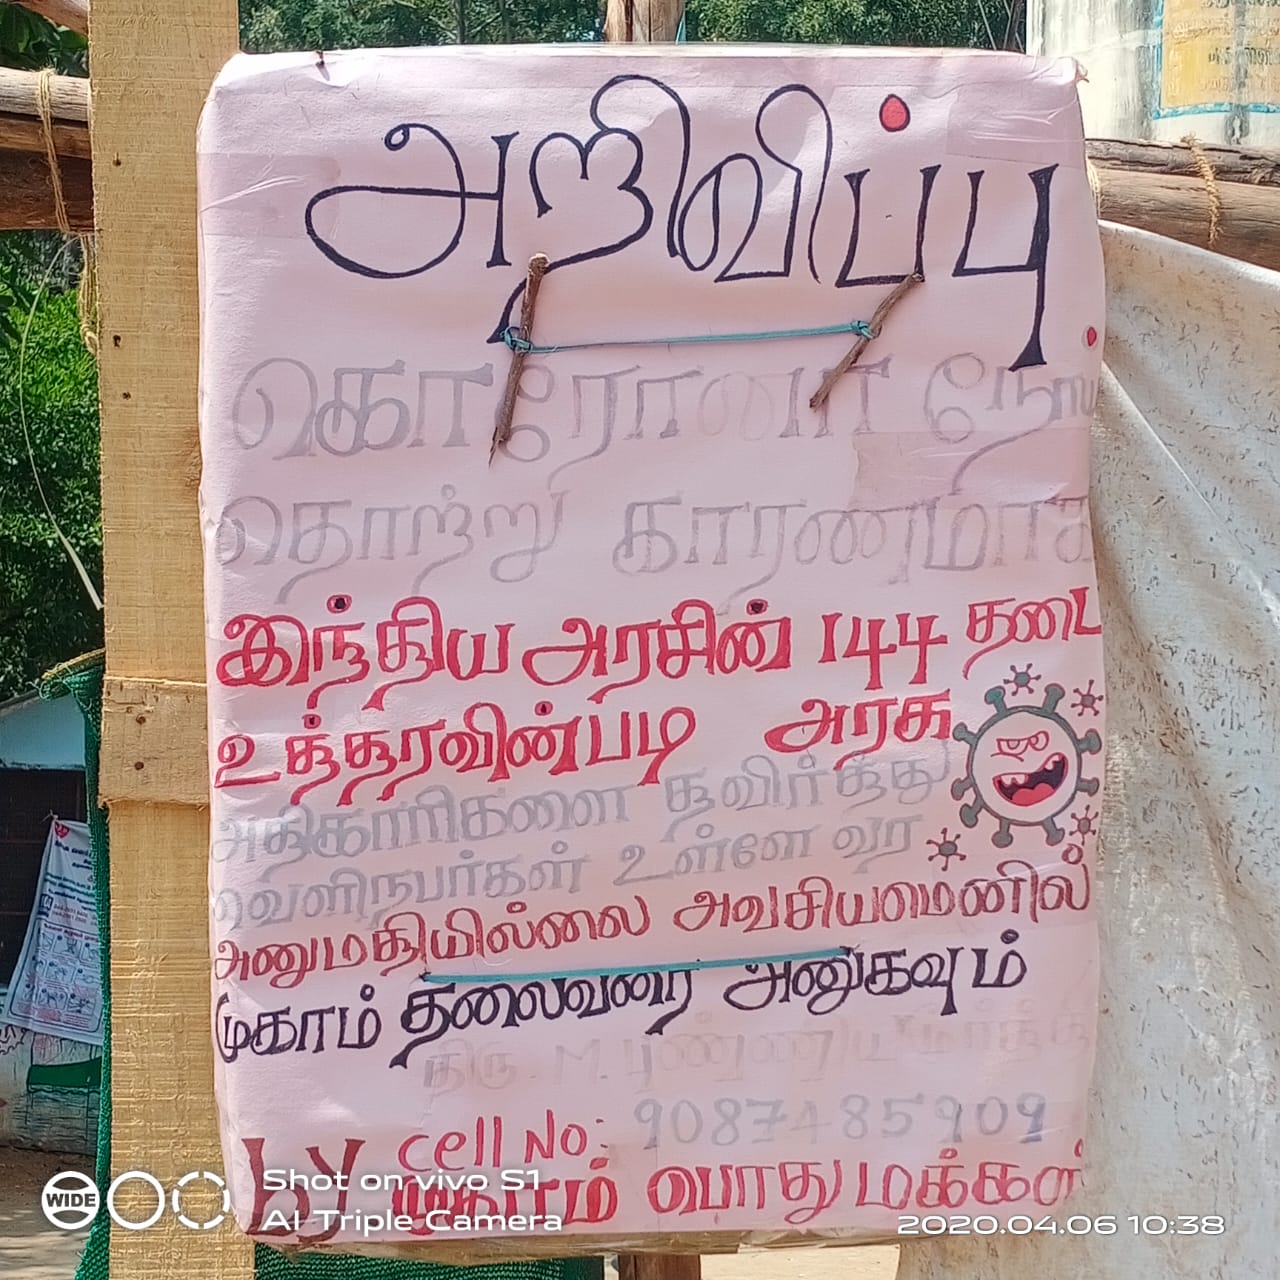 அறிவிப்பு
கொரோனா நோய்
தொற்று காரணமாக
இந்திய அரசின் 144 தடை
உத்தரவின்படி அரசு
அதிகாரிகளை தவிர்த்து
வெளிநபர்கள் உள்ளே வர
அனுமதியில்லை அவசியமெனில்
முகாம் தலைவரை அனுகவும்
திரு. M.
Cell No: 9087485909
by முகாம் பொதுமக்கள்
Shot on vivo S1
AI Triple Camera
WIDE
2020.04.06 10:38